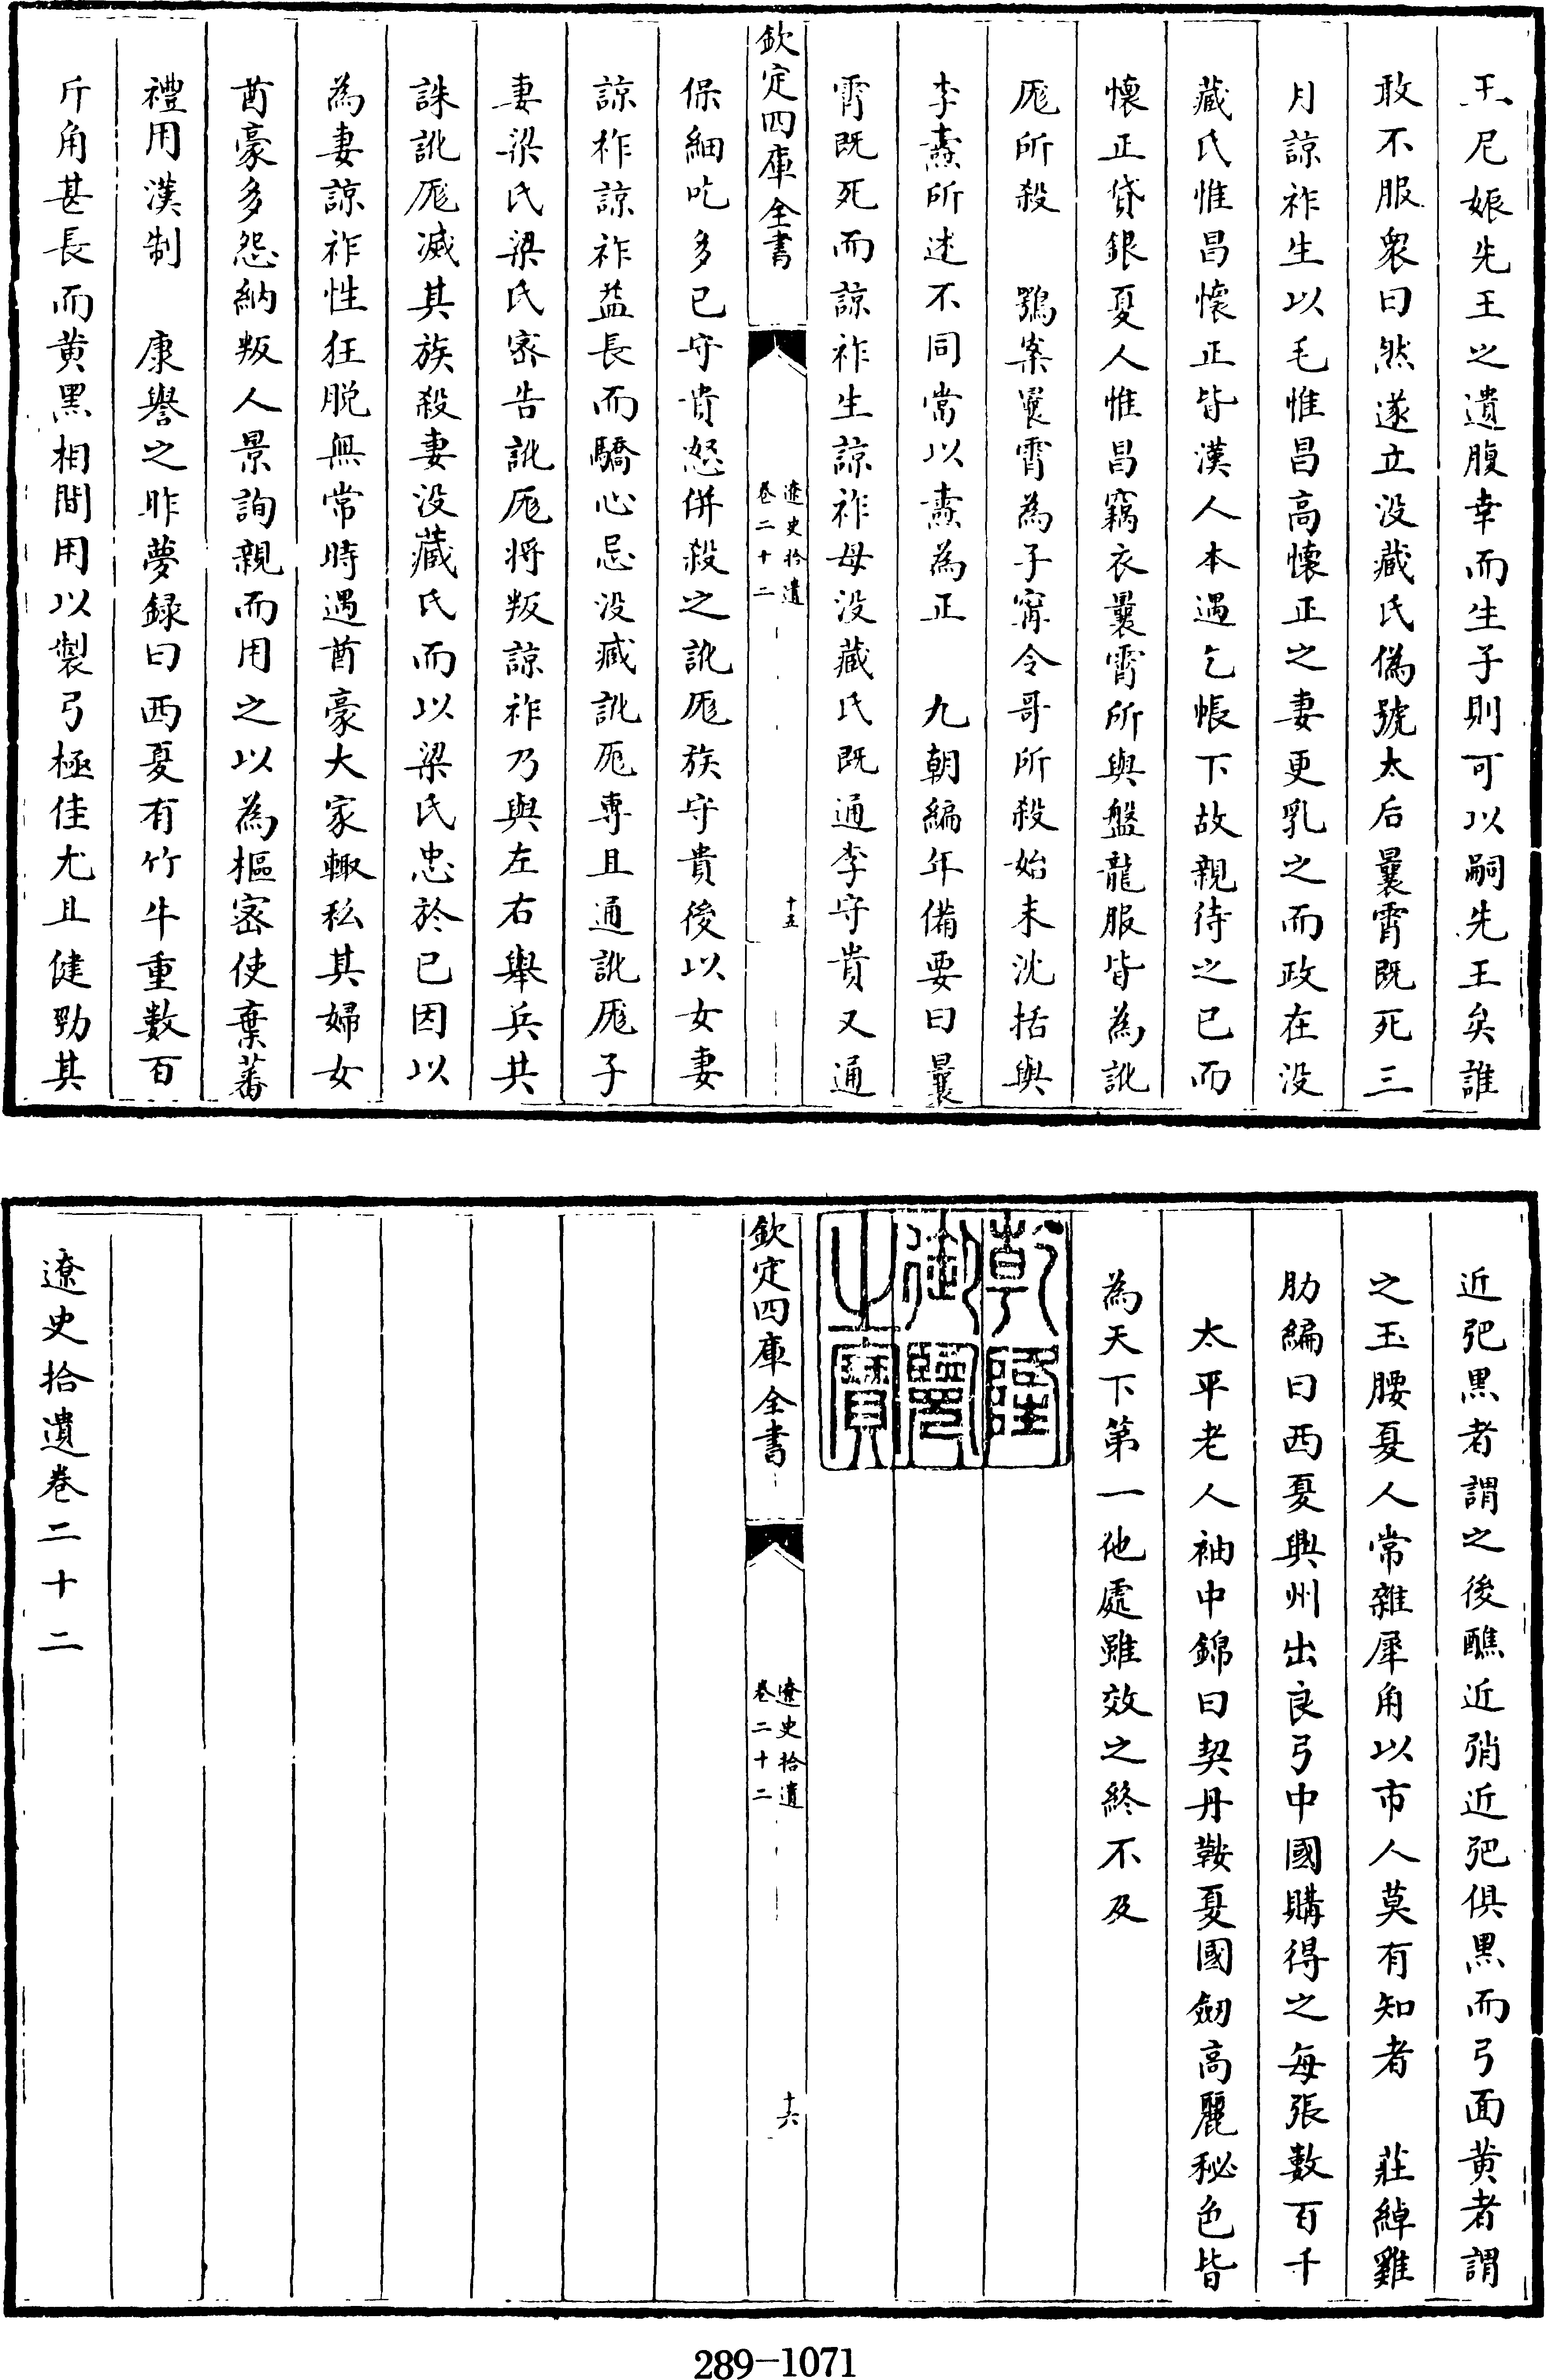 王尼娠先王之遺腹幸而生子則可以嗣先王矣誰
敢不服衆曰然遂立没藏氏偽號太后曩霄既死三
月諒祚生以毛惟昌高懐正之妻更乳之而政在没
藏氏惟昌懐正皆漢人本遇乞帳下故親待之已而
懐正貸銀夏人惟昌竊衣曩霄所與盤龍服皆為訛
厖所殺　鶚案曩霄為子甯令哥所殺始末沈括與
李燾所述不同當以燾為正　九朝編年備要曰曩
霄既死而諒祚生諒祚母没藏氏既通李守貴又通
欽定四庫全書
遼史拾遺
卷二十二
十五
保細吃多已守貴怒併殺之訛厖族守貴後以女妻
諒祚諒祚益長而驕心忌没臧訛厖専且通訛厖子
妻梁氏梁氏宻告訛厖将叛諒祚乃與左右舉兵共
誅訛厖滅其族殺妻没藏氏而以梁氏忠於已因以
為妻諒祚性狂脱無常時遇酋豪大家輙私其婦女
酋豪多怨納叛人景詢親而用之以為樞宻使棄蕃
禮用漢制　康譽之昨夢録曰西夏有竹牛重數百
斤角甚長而黄黑相間用以製弓極佳尤且健勁其
近弝黒者謂之後醮近弰近弝俱黒而弓面黄者謂
之玉腰夏人常雜犀角以市人莫有知者　莊綽雞
肋編曰西夏興州出良弓中國購得之每張數百千
太平老人袖中錦曰契丹鞍夏國劒高麗秘色皆
為天下第一他處雖效之終不及
乾隆
御覽
之寳
欽定四庫全書
遼史拾遺
卷二十二
十六
遼史拾遺卷二十二
289-1071